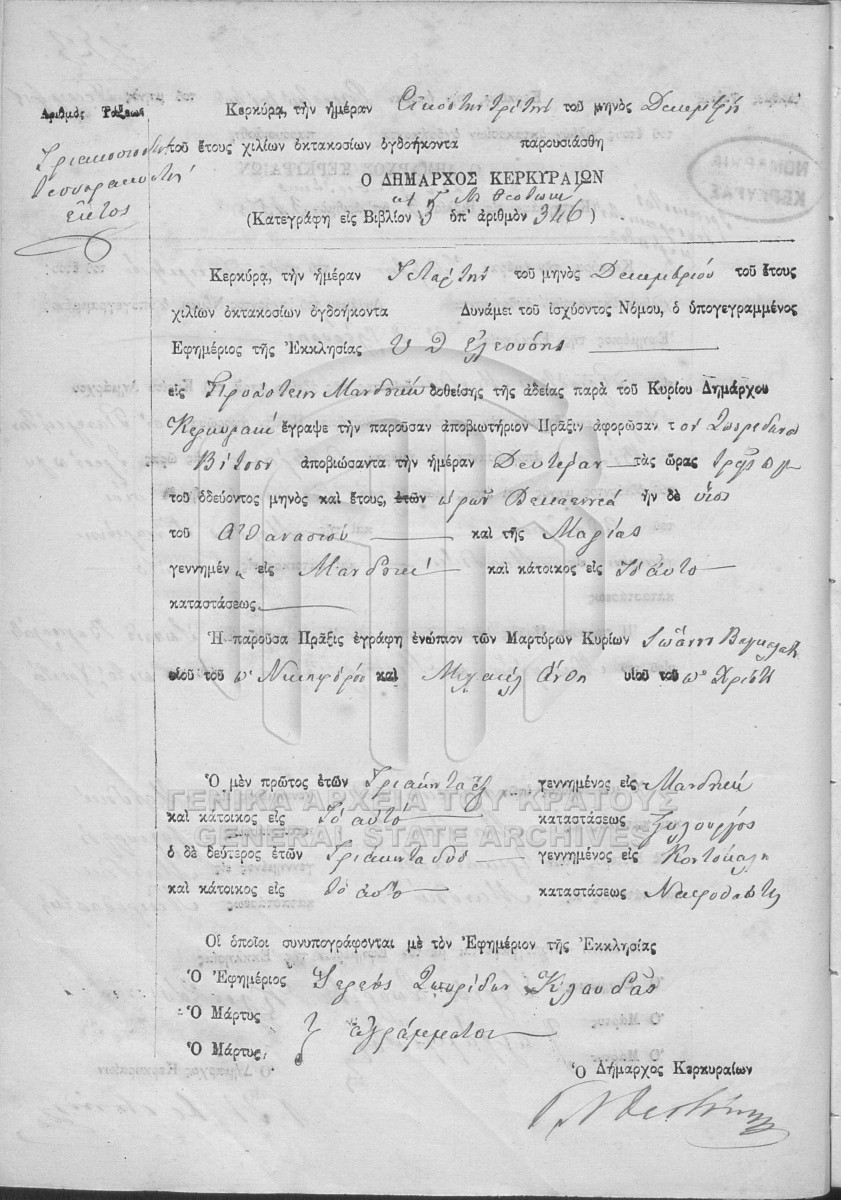 Ἀριθμὸς Τάξεως
Τριακοσιοστὸς
τεσσαρακοστὸς
ἕκτος
Κερκύρα, τὴν ἡμέραν Εἰκοστὴν τρίτην τοῦ μηνὸς Δεκεμβρίου
τοῦ ἔτους χιλίων ὀκτακοσίων ὀγδοήκοντα παρουσιάσθη
Ο ΔΗΜΑΡΧΟΣ ΚΕΡΚΥΡΑΙΩΝ
(Κατεγράφη εἰς Βιβλίον 3 ὑπ' ἀριθμὸν 346)
ΝΟΜΑΡΧΙΑ
ΚΕΡΚΥΡΑΣ
Κερκύρα, τὴν ἡμέραν Τετάρτην τοῦ μηνὸς Δεκεμβρίου τοῦ ἔτους
χιλίων ὀκτακοσίων ὀγδοήκοντα Δυνάμει τοῦ ἰσχύοντος Νόμου, ὁ ὑπογεγραμμένος
Ἐφημέριος τῆς Ἐκκλησίας Υ Θ Ἐλεούσης
εἰς Προάστειον Μανδούκι δοθείσης τῆς ἀδείας παρὰ τοῦ Κυρίου Δημάρχου
ἔγραψε τὴν παροῦσαν ἀποβιωτήριον Πρᾶξιν ἀφορῶσαν τὸν Σπυρίδωνα
Βίτσον ἀποβιώσαντα τὴν ἡμέραν Δευτέραν τὰς ὥρας τρεῖς π μ
τοῦ ὁδεύοντος μηνὸς καὶ ἔτους, ἐτῶν ὡρῶν Δεκαεννεά ἦν δὲ υἱὸς
τοῦ Ἀθανασίου καὶ τῆς Μαρίας
γεννημέν εἰς Μανδούκι καὶ κάτοικος εἰς Τὸ αὐτὸ
καταστάσεως
Ἡ παροῦσα Πρᾶξις ἐγράφη ἐνώπιον τῶν Μαρτύρων Κυρίων Ἰωάννη
υἱοῦ τοῦ π. Νικηφόρου καὶ Μιχαὴλ Ἄνθη υἱοῦ τοῦ π. Χρίστου
Ὁ μὲν πρῶτος ἐτῶν Τριάκοντα ἕξ γεννημένος εἰς Μανδούκι
ΓΕΝΙΚΑ ΑΡΧΕΙΑ ΤΟΥ ΚΡΑΤΟΥΣ
καὶ κάτοικος εἰς Τὸ αὐτὸ καταστάσεως Ξυλουργός
GENERAL STATE ARCHIVES
ὁ δὲ δεύτερος ἐτῶν Τριάκοντα δύο γεννημένος εἰς Κοντόκαλι
καὶ κάτοικος εἰς τὸ αὐτὸ καταστάσεως Νεκροθάπτης
Οἱ ὁποῖοι συνυπογράφονται μὲ τὸν Ἐφημέριον τῆς Ἐκκλησίας
Ὁ Ἐφημέριος Ἱερεὺς Σπυρίδων Κιλουδᾶς
Ὁ Μάρτυς
ἀγράμματοι
Ὁ Μάρτυς,
Ὁ Δήμαρχος Κερκυραίων